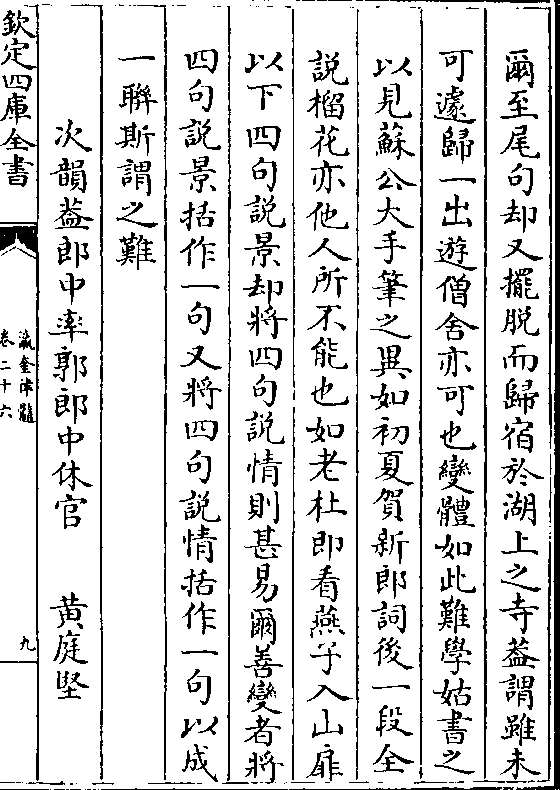 爾至尾句却又擺脱而歸宿於湖上之寺葢謂雖未
可遽歸一出遊僧舍亦可也變體如此難學姑書之
以見蘇公大手筆之異如初夏賀新郎詞後一段全
説榴花亦他人所不能也如老杜即看燕子入山扉
以下四句説景却將四句説情則甚易爾善變者將
四句説景括作一句又將四句説情括作一句以成
一聯斯謂之難
次韻葢郎中率郭郎中休官　黄庭堅
欽定四庫全書
瀛奎律髓
卷二十六
九